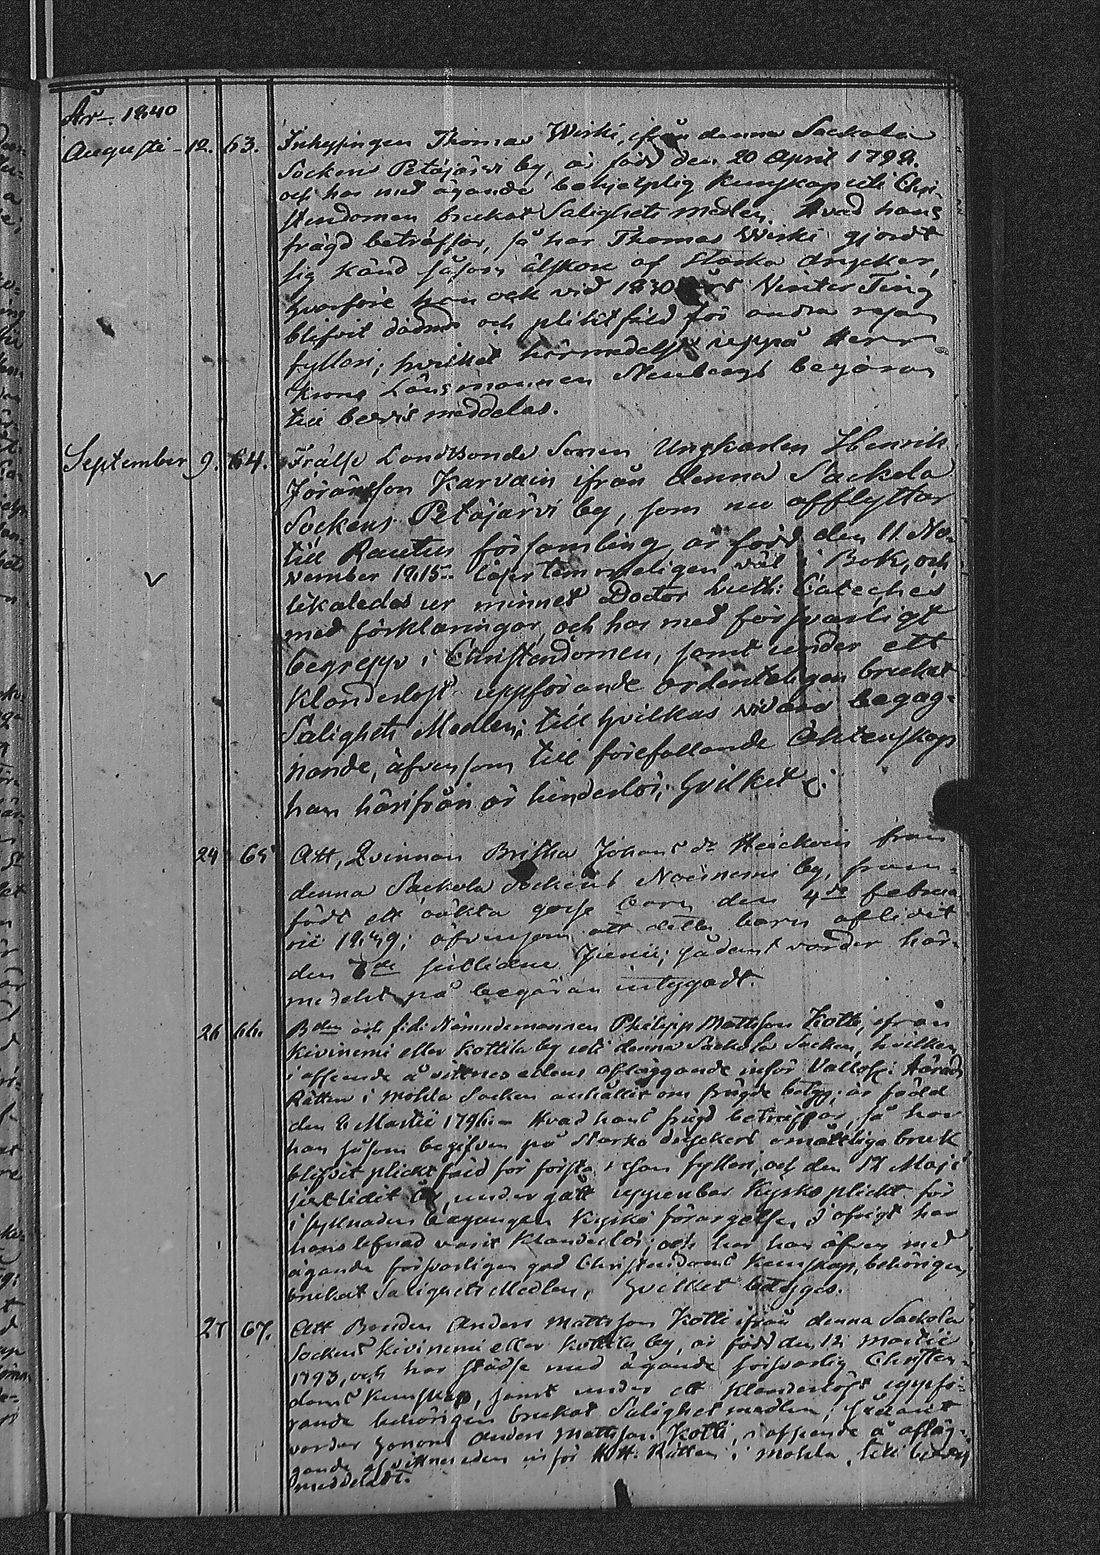 År 1840
Augusti 12. 63. Inhysingen Thomas Wirki, ifrån denna Sackola
Sockens Petäjärvi by, är född den 20 April 1799.
och har med ägande behjelplig Kunskap uti Chri-
stendomen brukat Salighets medlen. Hvad hans
frägd beträffar, så har Thomas Wirki gjordt
sig känd såsom älskare af starka drycker,
hvarföre han ock vid 1830 års Vinter Ting
blifvit dömd och pliktfäld för andra resan
fylleri; hvilket härmedelst uppå Herr
Krono Länsmannen Stenbergs begäran
till bevis meddelas.
September 9. 64. Frälse Landbonde Sonen Ungkarlen Henrik
Jöransson Karvain ifrån denna Sackola
Sockens Petäjärvi by, som nu afflyttar
till Rautus församling, är född den 11 No-
vember 1815. läser temmeligen väl i Bok, och
likaledes ur minnet Doctor Luth: Cateches
med förklaringar, och har med försvarligt
begrepp i Christendomen, samt under ett
Klanderlöst uppförande ordenteligen brukat
Salighets Medlen; till hvilkas vidare begag-
nande, äfvensom till förefallande Ächtenskap
han härifrån är hinderlös; hvilket &.
24 65 Att, Qvinnan Britha Johans dr Heickoin från
denna Sackola Sockens by, fram-
födt ett oäkta gosse barn den 4de Februa-
rii 1839; äfvensom att detta barn aflidit
den 7de sistlidne Junii; sådant varder här-
medelst på begäran intygadt.
26 66. Bden och f.d. Nämndemannen Philipp Mattsson Kotti, ifrån
Kivinemi eller Kottila by uti denna Sackola Socken, hvilken
i afseende å vittnes edens afläggande inför Vällofl: Härads
Rätten i Mohla Socken anhållit om frägde betyg; är född
den 6 Martii 1796. Hvad hans frägd beträffar, så har
han såsom begifven på starka dryckers omåttliga bruk
blifvit plicktfäld för första resan fylleri, och den 12 Maji
sistlidit År, undergått uppenbar Kyrko plickt för
i fyllnaden begången Kyrko förargelse. I öfrigt har
hans lefnad varit Klanderlös; och har han äfven med
ägande försvarligen god Christendoms Kunskap, behörigen
brukat Salighets Medlen, hvilket betygas.
27 67. Att Bonden Anders Mattsson Kotti ifrån denna Sackola
Sockens Kivinemi eller Kottila by, är född den 12 Martii
1793, och har städse med ägande försvarlig Christen-
doms Kunskap, samt under ett Klanderlöst uppfö-
rande behörigen brukat Salighets medlen; sådant
varder honom Anders Mattsson Kotti, i afseende å afläg-
gande af vittneseden inför H. Rätten i Mohla, till bevis
meddeladt.